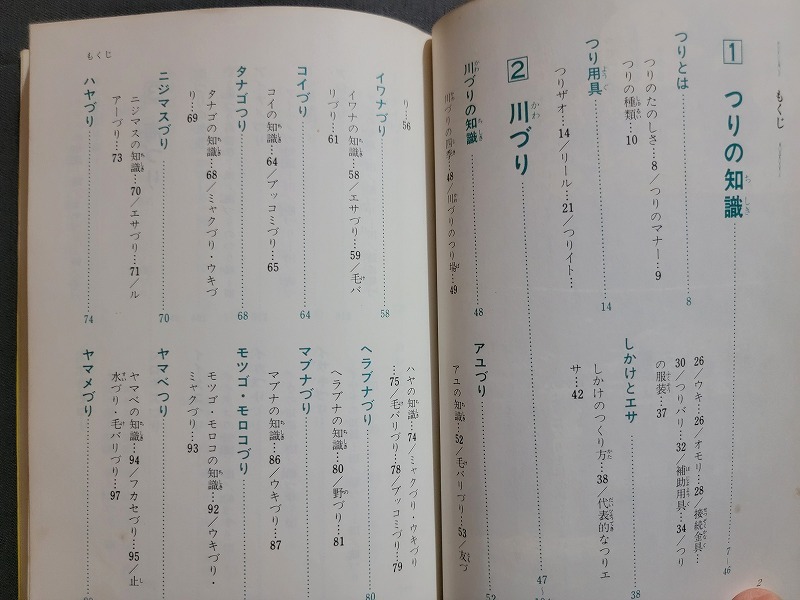 もくじ
1 つりの知識……7〜46
つりとは……8
つりのたのしさ…8／つりのマナー…9
つりの種類…10
つり用具……14
つりザオ…14／リール…21／つりイト…
26／ウキ…26／オモリ…28 接続金具…
30／つりバリ…32／補助用具…34／つり
の服装…37
しかけとエサ……38
しかけのつくり方…38／代表的なつりエ
サ…42
2 川づり……47〜
川づりの知識……48
川づりの四季…48／川づりのつり場…49
アユづり……52
アユの知識…52／毛バリづり…53／友づ
2
もくじ
り…56
イワナづり……58
イワナの知識…58／エサづり…59／毛バ
リづり…61
コイづり……64
コイの知識…64／ブッコミづり…65
タナゴつり……68
タナゴの知識…68／ミャクづり・ウキづ
り…69
ニジマスづり……70
ニジマスの知識…70／エサづり…71／ル
アーづり…73
ハヤづり……74
ハヤの知識…74／ミャクづり・ウキづり
…75／毛バリづり…78／ブッコミづり…79
ヘラブナづり……80
ヘラブナの知識…80／野づり…81
マブナづり
マブナの知識…86／ウキづり…87
モツゴ・モロコづり
モツゴ・モロコの知識…92／ウキづり・
ミャクづり…93
ヤマベつり
ヤマベの知識…94／フカセづり…95／止
水づり・毛バリづり…97
ヤマメづり